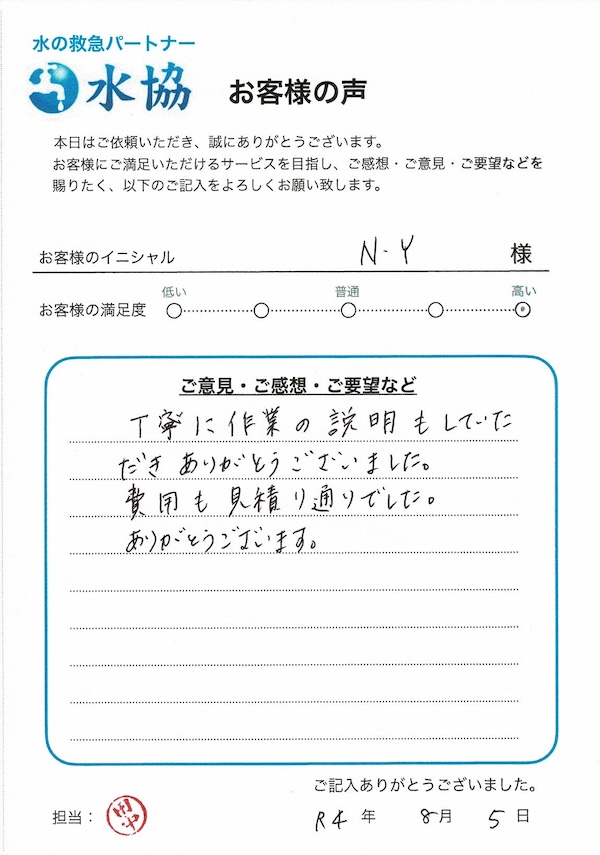 水の救急パートナー
水協 お客様の声
本日はご依頼いただき、誠にありがとうございます。
お客様にご満足いただけるサービスを目指し、ご感想・ご意見・ご要望などを
賜りたく、以下のご記入をよろしくお願い致します。
お客様のイニシャル N-Y 様
低い 普通 高い
お客様の満足度
ご意見・ご感想・ご要望など
丁寧に作業の説明もしていた
だきありがとうございました。
費用も見積り通りでした。
ありがとうございます。
ご記入ありがとうございました。
担当： 田中 R4 年 8月 5日